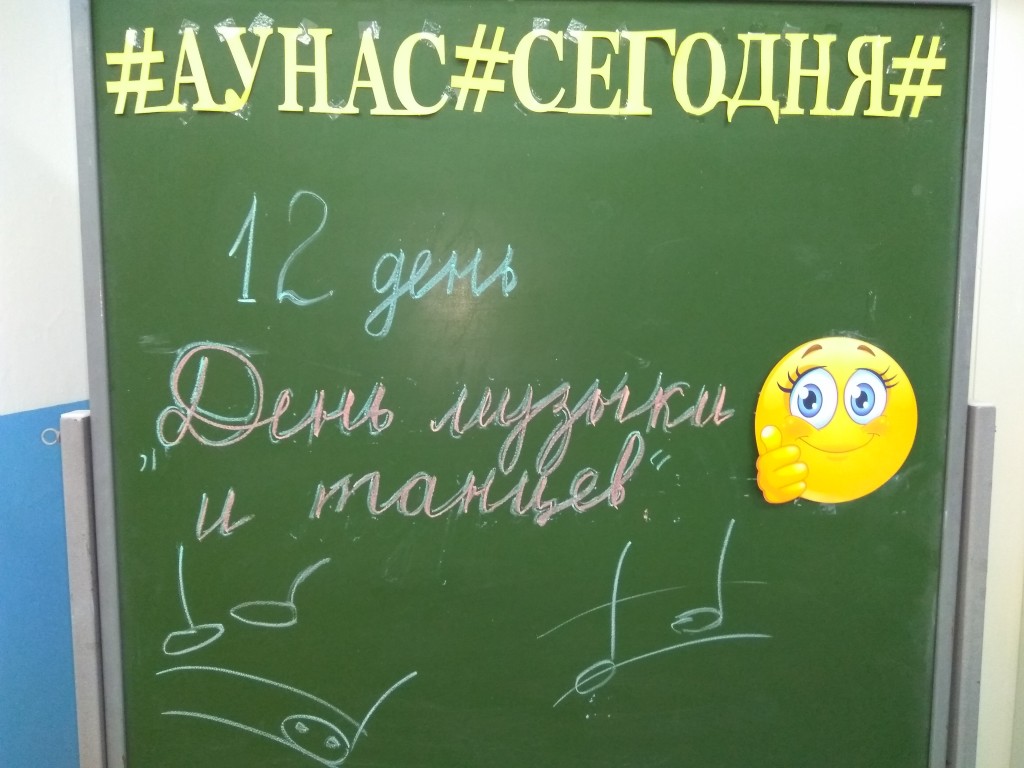 #АУНАС#СЕГОДНЯ#
12 день
„День музыки
и танцев“